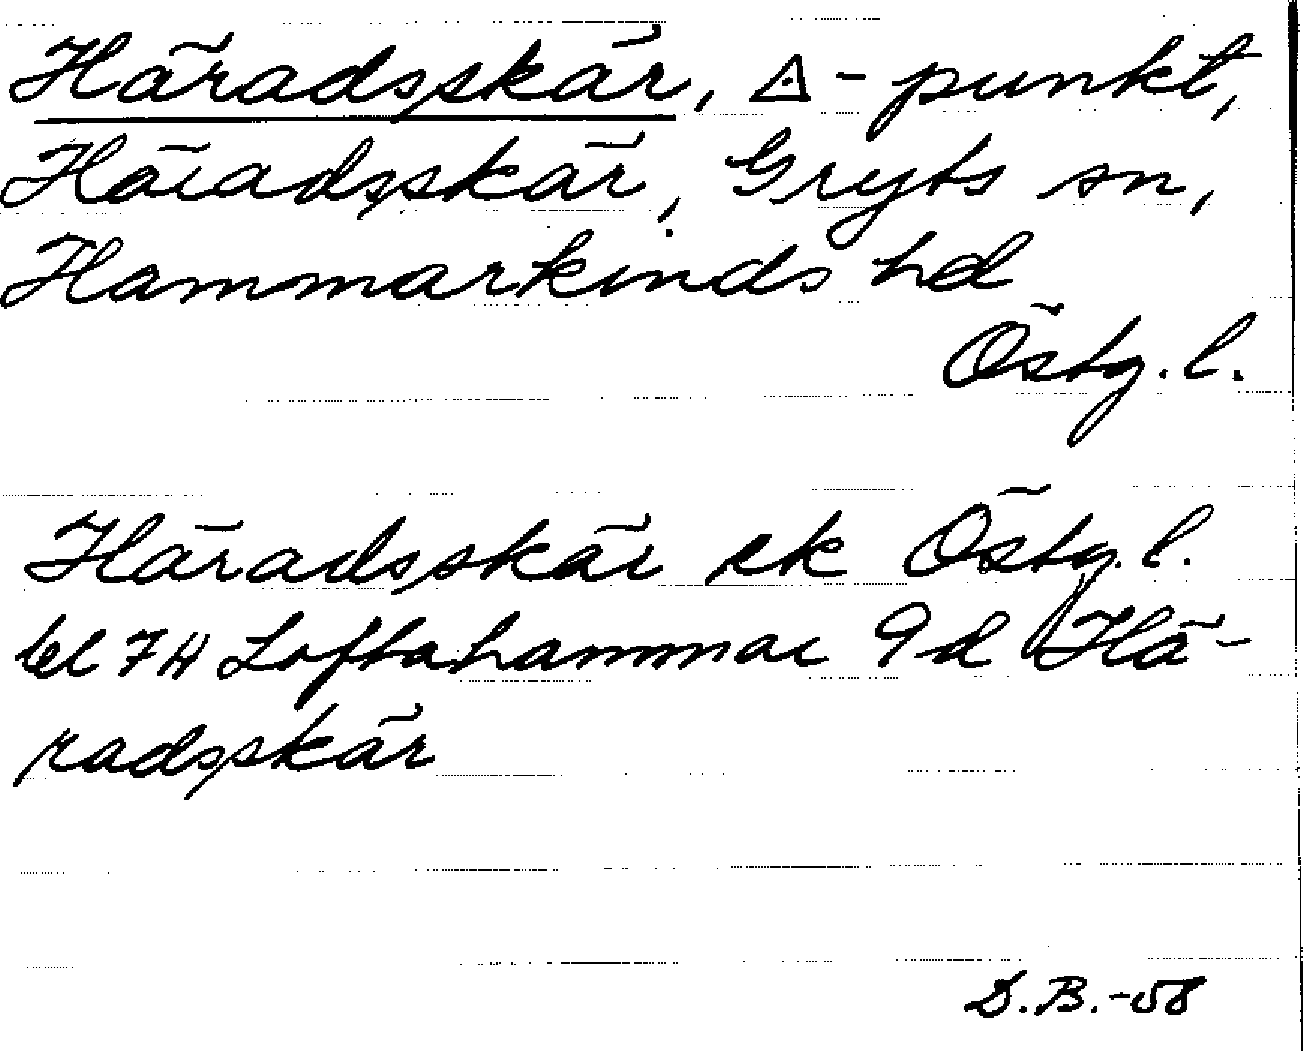 Häradsskär, △-punkt,
Häradsskär, Gryts sn,
Hammarkinds hd
Östg. l.
Häradsskär ek Östg. l.
bl 7H Loftahammar 9d Hä-
radsskär
D.B.-58